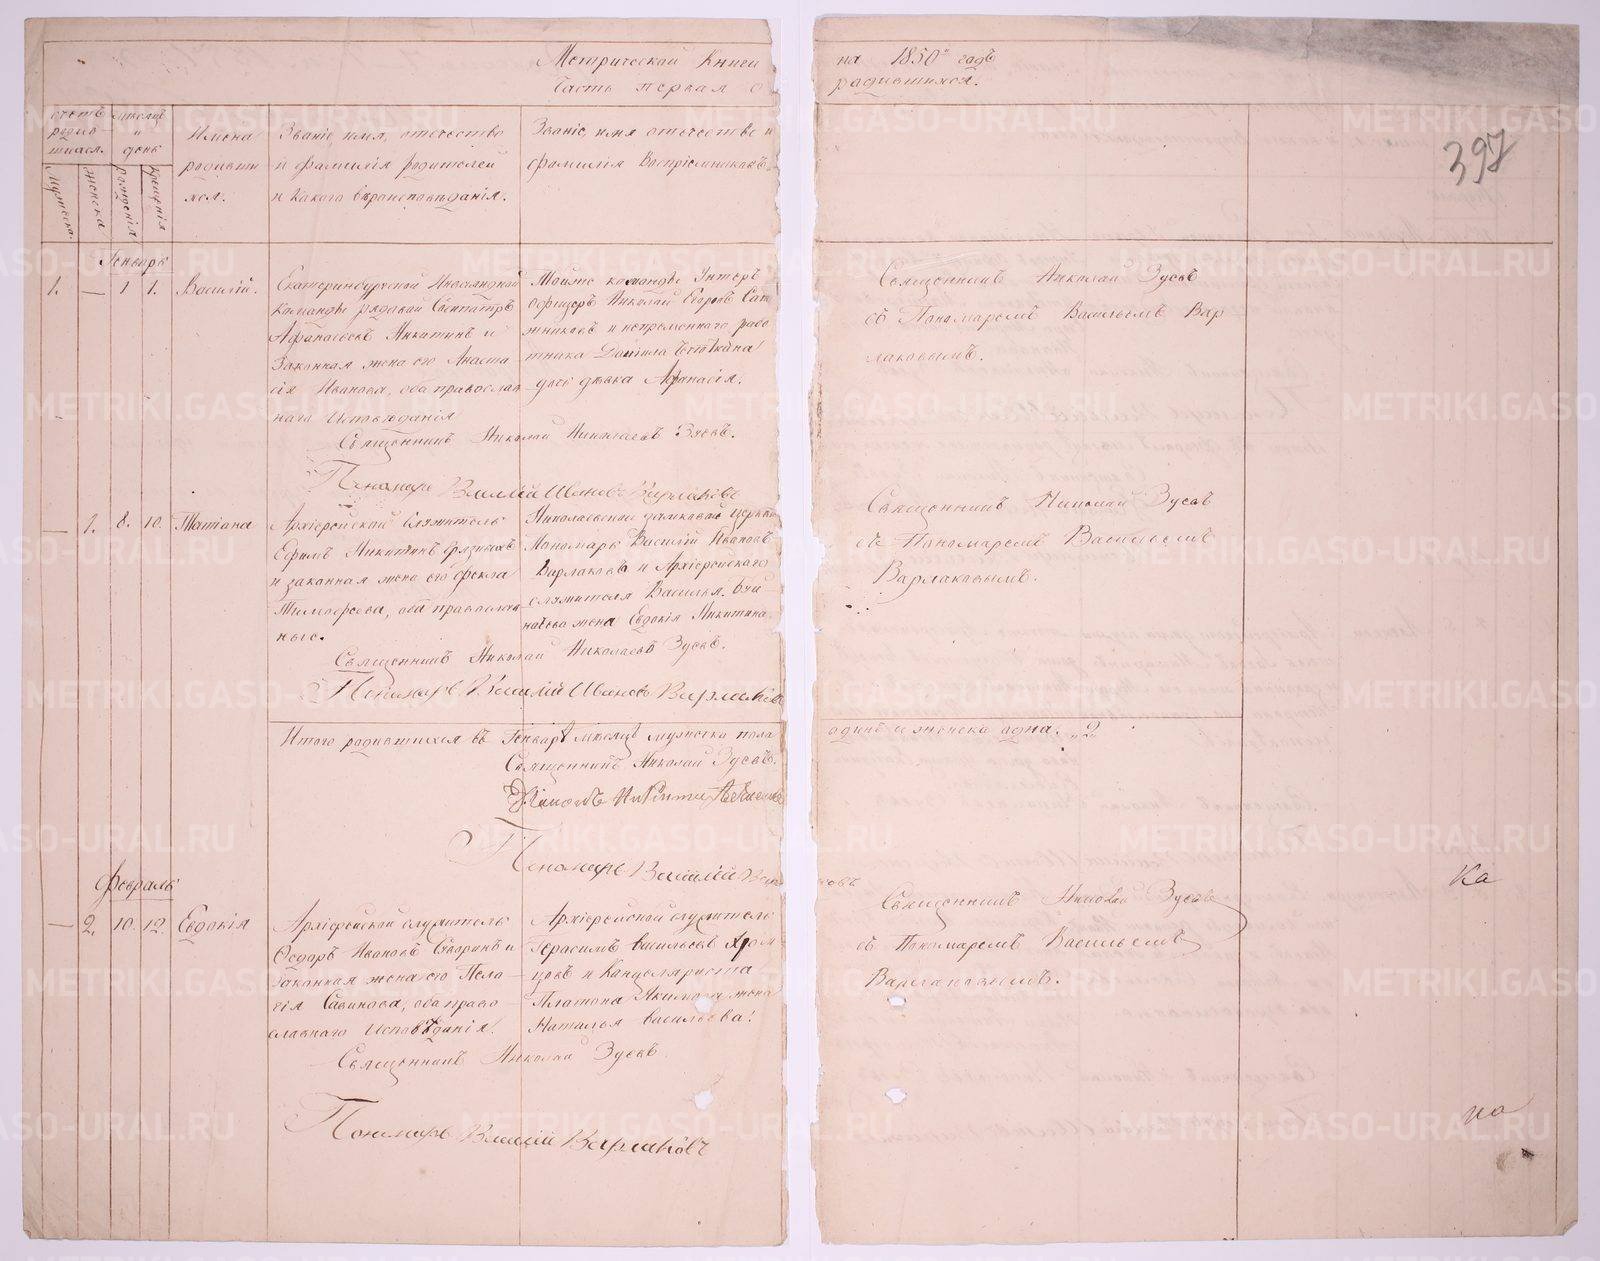 Метрической Книги
Часть первая о
на 1850й годъ
родившихся.
397
Счетъ
родив-
шихся.
Мѣсяцъ
и
день
Мужеска.
Женска
Рожденія
Крещенія
Имена
родивши
хся.
Званіе, имя, отечество
и фамилія родителей
и какого вѣроисповѣданія.
Званіе, имя отечество и
фамилія Воспріемниковъ.
Генварь
1. — 1 1. Василій.
Екатеринбургской Инвалидной
команды рядовой
Афанасьевъ Никитинъ и
Законная жена его Анаста
сія Иванова, оба православ
наго Исповѣданія
Тойже команды Унтеръ
офицеръ Николай Егоровъ Сап
ожниковъ и непременнаго рабо
тника Данила
дочь дѣвка Афанасія.
Священникъ Николай Николаевъ Зуевъ.
Пономарь Василій Ивановъ Варлаковъ
Священникъ Николай Зуевъ
съ Пономаремъ Васильемъ Вар
лаковымъ.
— 1. 8. 10. Татіана
Архіерейской Служитель
Ефимъ Никитинъ
и законная жена его Фекла
Тимофеева, оба православ
ные.
Николаевской домовой церкви
Пономарь Василій Ивановъ
Варлаковъ и Архіерейскаго
служителя Василья
жена Евдокія Никитина.
Священникъ Николай Николаевъ Зуевъ.
Пономарь Василій Ивановъ Варлаковъ
Священникъ Николай Зуевъ
съ Пономаремъ Васильемъ
Варлаковымъ.
Итого родившихся въ Генварѣ мѣсяцѣ мужеска пола
одинъ и женска одна. „2„
Священникъ Николай Зуевъ.
Пономарь Василій Вар
ковъ
Февраль
— 2. 10. 12. Евдокія
Архіерейской служитель
Ѳедоръ Ивановъ и
законная жена его Пела
гія Савинова, оба право
славнаго Исповѣданія.
Архіерейской служитель
Герасимъ Васильевъ
цовъ и Канцеляриста
Платона Якимова жена
Наталья Васильева.
Священникъ Николай Зуевъ
Пономарь Василій Варлаковъ
Священникъ Николай Зуевъ
съ Пономаремъ Васильемъ
Варлаковымъ.
METRIKI.GASO-URAL.RU